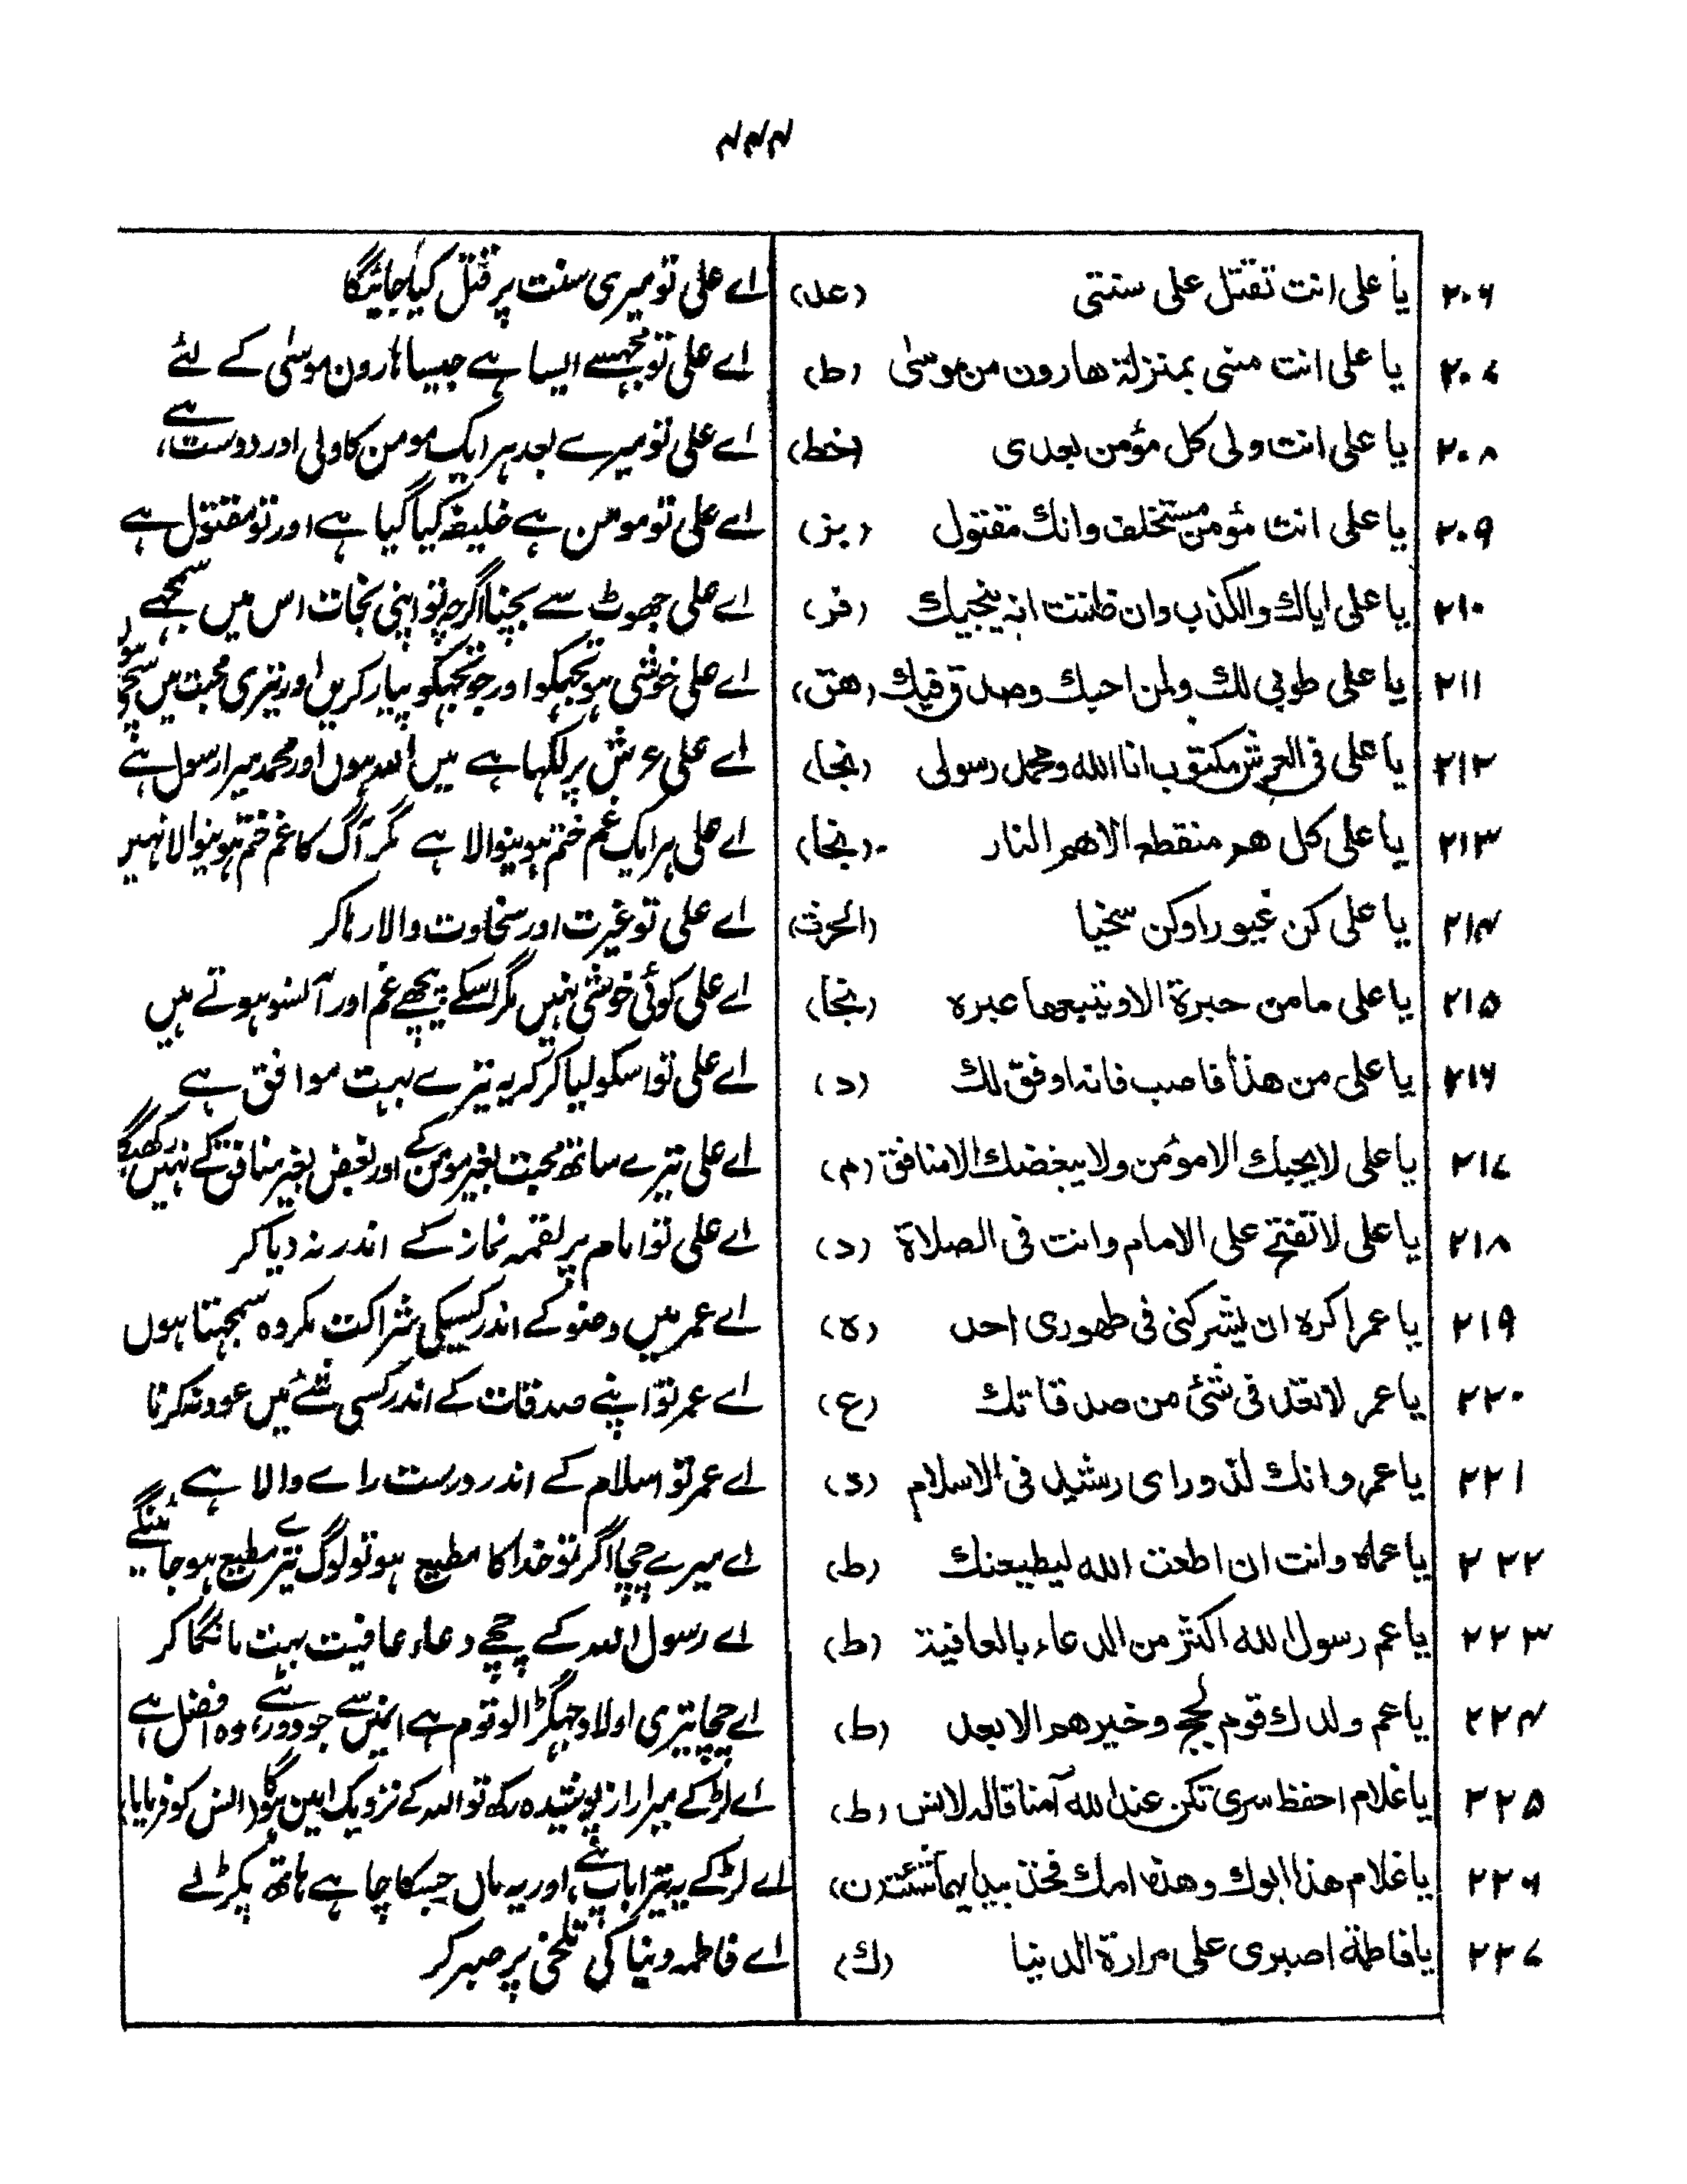 ۴۴۴
۲۰۶ يا علی انت تقتل علی سنتی (عد) اے علی تو میری سنت پر قتل کیا جائیگا
۲۰۷ يا علی انت منی بمنزلة هارون من موسیٰ (ط) اے علی تو مجھسے ایسا ہے جیسا ہارون موسیٰ کے لئے
۲۰۸ يا علی انت ولی کل مؤمن بعدی (خط) اے علی تو میرے بعد ہر ایک مومن کا ولی اور دوست ہے،
۲۰۹ يا علی انت مؤمن مستخلف وانك مقتول (بز) اے علی تو مومن ہے خلیفہ کیا گیا ہے اور تو مقتول ہے
۲۱۰ يا علی اياك والکذب وان ظننت انه ينجيك (فر) اے علی جھوٹ سے بچنا اگرچہ تو اپنی نجات اس میں سمجھے
۲۱۱ يا علی طوبی لك ولمن احبك وصدق فيك (هق) اے علی خوشی ہو تجھکو اور جو تجھکو پیار کریں اور تیری محبت میں سچے ہوں
۲۱۲ يا علی فی العرش مکتوب انا الله ومحمد رسولی (نجا) اے علی عرش پر لکھا ہے میں اللہ ہوں اور محمد میرا رسول ہے
۲۱۳ يا علی کل هم منقطع الا هم النار (نجا) اے علی ہر ایک غم ختم ہونیوالا ہے مگر آگ کا غم ختم ہونیوالا نہیں
۲۱۴ يا علی کن غيورا وکن سخيا (الحرث) اے علی تو غیرت اور سخاوت والا رہا کر
۲۱۵ يا علی ما من حبرة الا ويتبعها عبره (نجا) اے علی کوئی خوشی نہیں مگر اسکے پیچھے غم اور آنسو ہوتے ہیں
۲۱۶ يا علی من هذا فاصب فانه اوفق لك (د) اے علی تو اسکو لیا کر کہ یہ تیرے بہت موافق ہے
۲۱۷ يا علی لا يحبك الا مؤمن ولا يبغضك الا منافق (م) اے علی تیرے ساتھ محبت بغیر مومن کے اور بغض بغیر منافق کے نہیں رکھیگا
۲۱۸ يا علی لا تفتح علی الامام وانت فی الصلاة (د) اے علی تو امام پر لقمہ نماز کے اندر نہ دیا کر
۲۱۹ يا عمر اکره ان يشرکنی فی طهوری احد (ه) اے عمر میں وضو کے اندر کسیکی شراکت مکروہ سمجھتا ہوں
۲۲۰ يا عمر لا تعد فی شئ من صدقاتك (ع) اے عمر تو اپنے صدقات کے اندر کسی شئے میں عود نہ کرنا
۲۲۱ يا عمر وانك لذو رای رشيد فی الاسلام (د) اے عمر تو اسلام کے اندر درست راے والا ہے
۲۲۲ يا عماه وانت ان اطعت الله ليطيعنك (ط) اے میرے چچا اگر تو خدا کا مطیع ہو تو لوگ تیرے مطیع ہو جائینگے
۲۲۳ يا عم رسول الله اکثر من الدعاء بالعافية (ط) اے رسول اللہ کے چچے دعاء عافیت بہت مانگا کر
۲۲۴ يا عم ولدك قوم لجج وخيرهم الابعد (ط) اے چچا تیری اولاد جھگڑالو قوم ہے انمیں سے جو دور ہے، وہ افضل ہے
۲۲۵ يا غلام احفظ سری تکن عند الله آمنا قاله لانس (ط) اے لڑکے میرا راز پوشیدہ رکھ تو اللہ کے نزدیک امین ہوگا (انس کو فرمایا)
۲۲۶ يا غلام هذا ابوك وهذه امك فخذ بيد ايهما شئت (ن) اے لڑکے یہ تیرا باپ ہے، اور یہ ماں جسکا چاہے ہاتھ پکڑ لے
۲۲۷ يا فاطمة اصبری علی مرارة الدنيا (ك) اے فاطمہ دنیا کی تلخی پر صبر کر